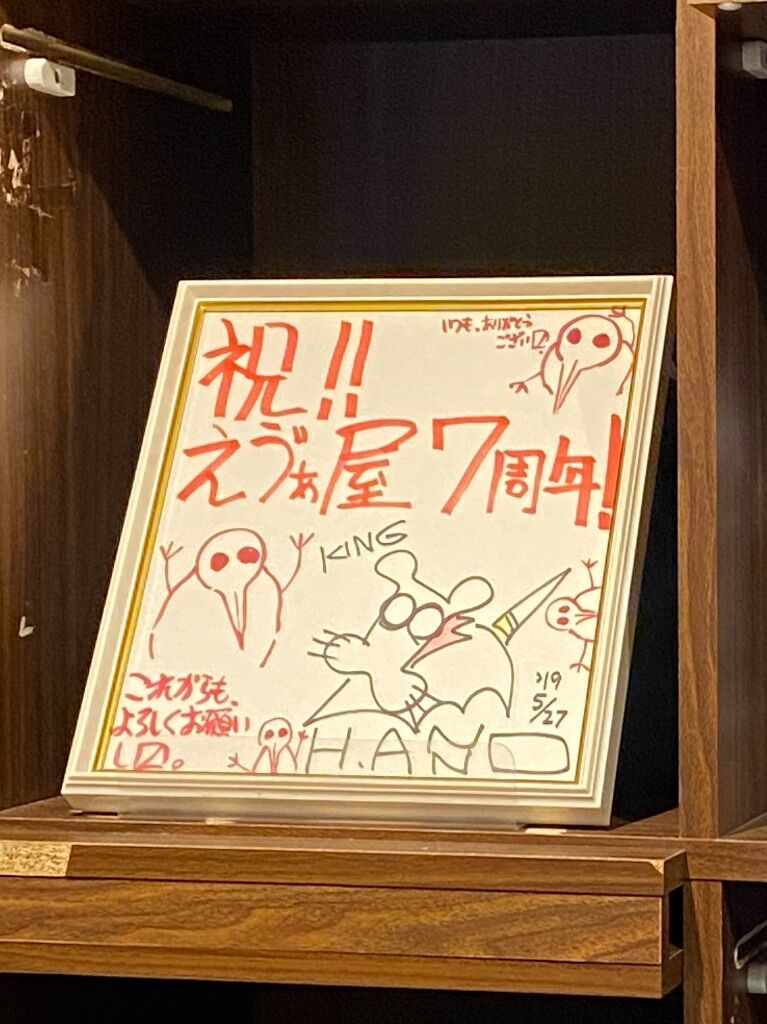 祝!!
いつも、ありがとう
ござい〼!
えゔぁ屋7周年!
KING
これからも、
よろしくお願い
し〼。
'19
5/27
H.AN